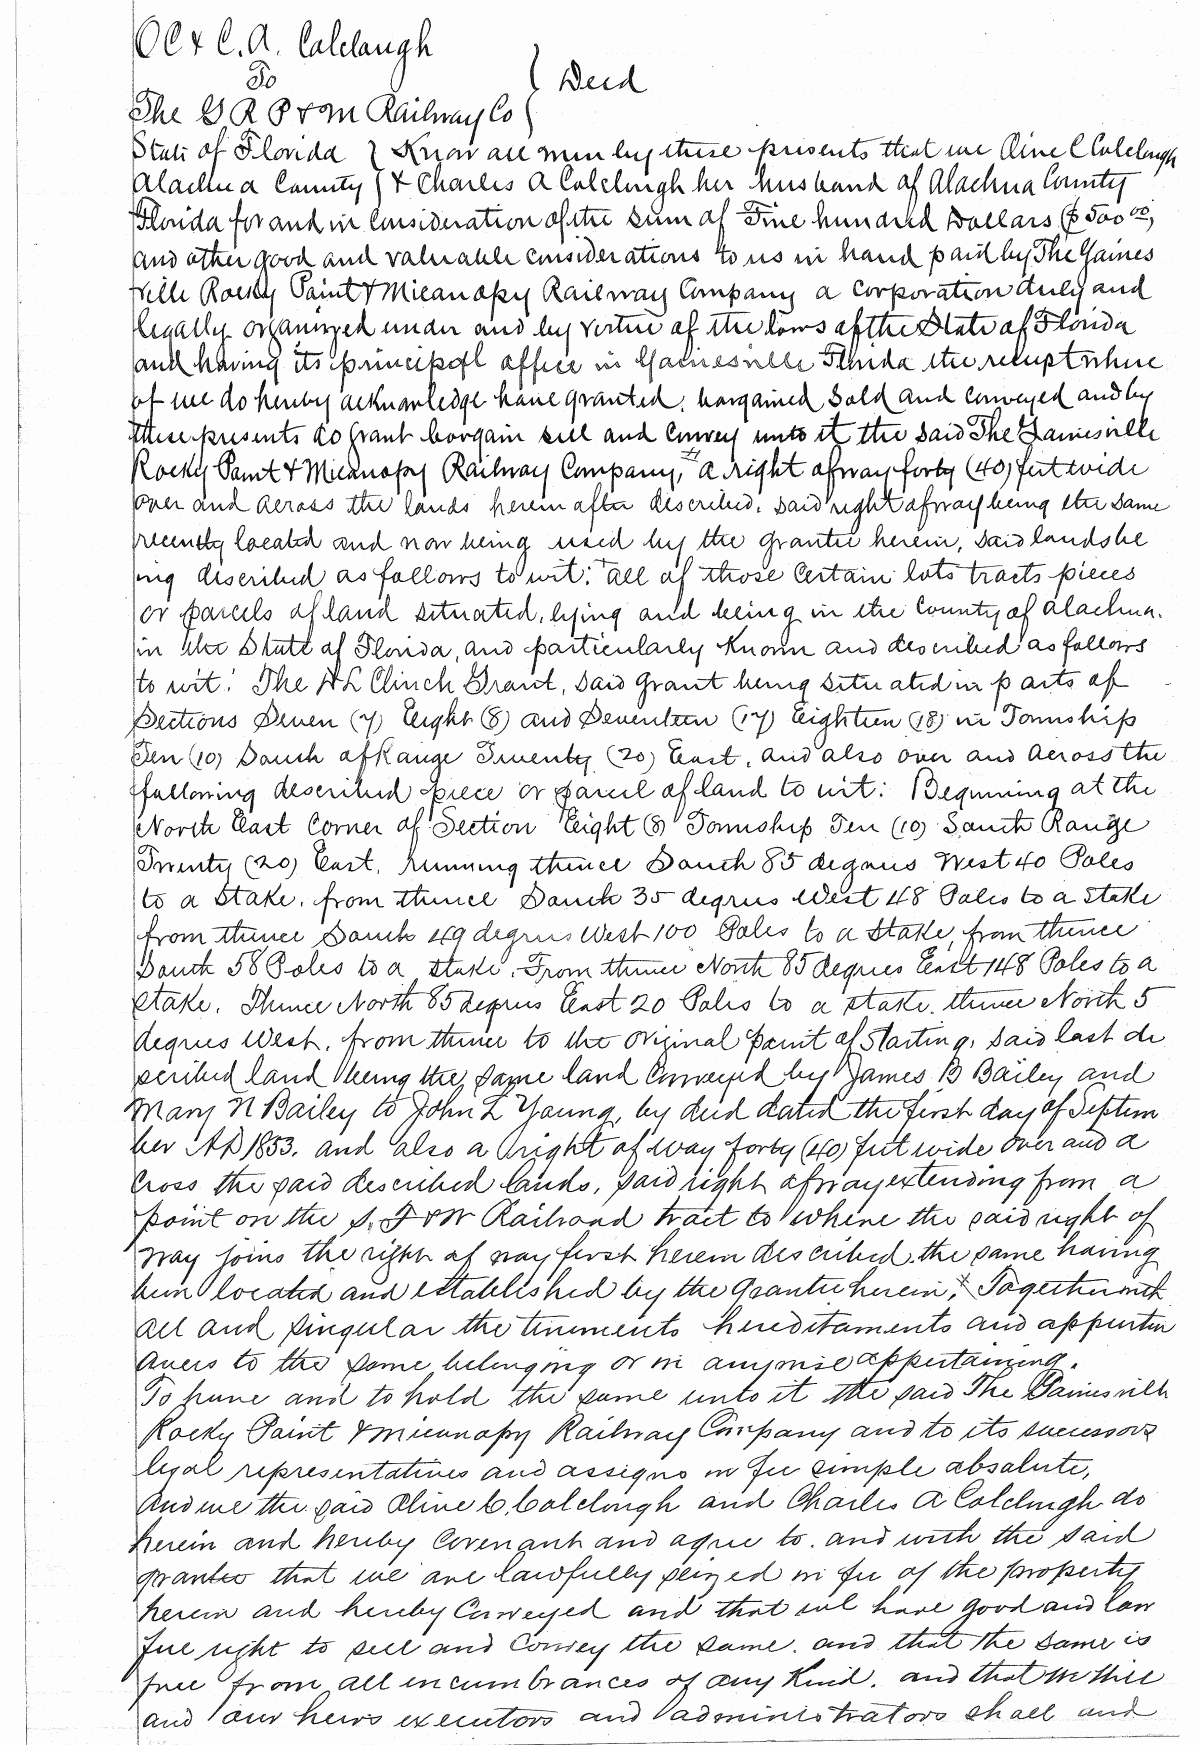 OC & C. A. Colclough
To } Deed
The G R P & M Railway Co
State of Florida } Know all men by these presents that we Olive C Colclough
Alachua County } & Charles A Colclough her husband of Alachua County
Florida for and in consideration of the sum of Five hundred Dollars ($500.00)
and other good and valuable considerations to us in hand paid by The Gaines
ville Rocky Point & Micanopy Railway Company a corporation duly and
legally organized under and by virtue of the laws of the State of Florida
and having its principal office in Gainesville Florida the receipt where
of we do hereby acknowledge have granted, bargained sold and conveyed and by
these presents do grant bargain sell and convey unto it the said The Gainesville
Rocky Point & Micanopy Railway Company, a right of way forty (40) feet wide
over and across the lands herein after described, said right of way being the same
recently located and now being used by the grantee herein, said lands be
ing described as follows to wit: all of those certain lots tracts pieces
or parcels of land situated, lying and being in the County of Alachua.
in the State of Florida, and particularly known and described as follows
to wit: The D L Clinch Grant, said grant being situated in parts of
Sections Seven (7) Eight (8) and Seventeen (17) Eighteen (18) in Township
Ten (10) South of Range Twenty (20) East, and also over and across the
following described piece or parcel of land to wit: Beginning at the
North East Corner of Section Eight (8) Township Ten (10) South Range
Twenty (20) East, running thence South 85 degrees West 40 Poles
to a stake, from thence South 35 degrees West 48 Poles to a stake
from thence South 49 degrees West 100 Poles to a stake, from thence
South 58 Poles to a stake, From thence North 85 degrees East 148 Poles to a
stake, Thence North 85 degrees East 20 Poles to a stake, thence North 5
degrees West, from thence to the original point of starting, said last de
scribed land being the same land conveyed by James B Bailey and
Mary N Bailey to John L Young, by deed dated the first day of Septem
ber AD 1853. and also a right of way forty (40) feet wide over and a
cross the said described lands, said right of way extending from a
point on the S. F & W Railroad tract to where the said right of
way joins the right of way first herein described, the same having
been located and established by the Grantee herein, Together with
all and singular the tenements hereditaments and appurten
ances to the same belonging or in anywise appertaining.
To have and to hold the same unto it the said The Gainesville
Rocky Point & Micanopy Railway Company and to its successors
legal representatives and assigns in fee simple absolute,
And we the said Olive C. Colclough and Charles A Colclough do
herein and hereby covenant and agree to and with the said
grantee that we are lawfully seized in fee of the property
herein and hereby conveyed and that we have good and law
ful right to sell and convey the same. and that the same is
free from all incumbrances of any kind. and that we will
and our heirs executors and administrators shall and